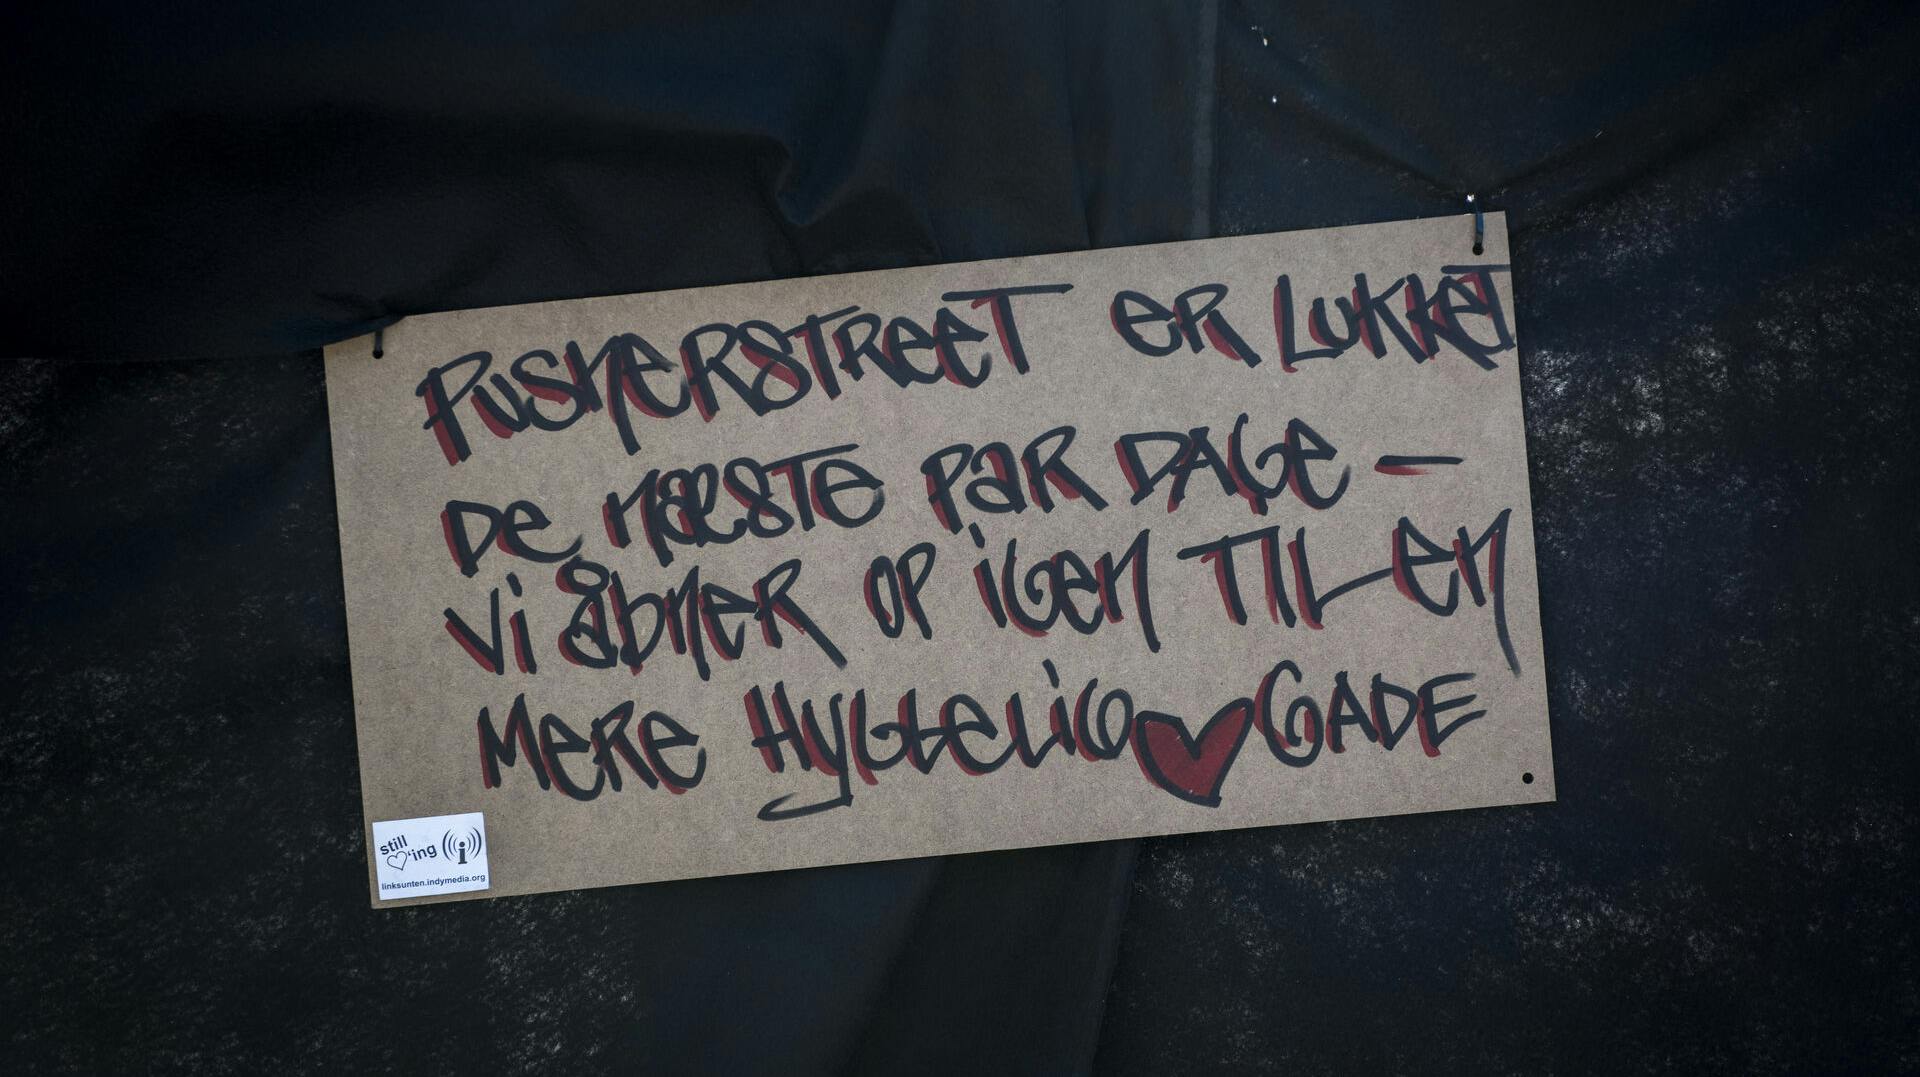 PUSHERSTREET ER LUKKET
DE NÆSTE PAR DAGE –
VI ÅBNER OP IGEN TIL EN
MERE HYGGELIG ♥ GADE
still ♡'ing i
linksunten.indymedia.org